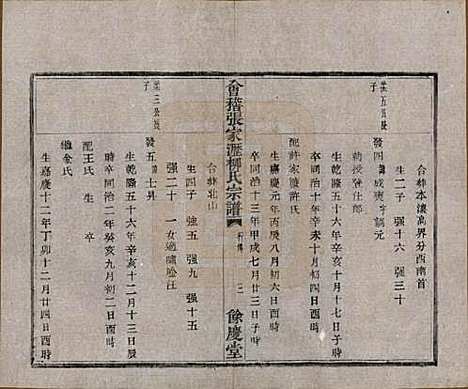 合葬本瀼高界分西南首
生二子 强十六 强三十
葉五公長
子
發四 諱成東 字調元
例授登仕郎
生乾隆五十六年辛亥十月十七日子時
卒同治十年辛未十月
配許家陵許氏
生嘉慶元年丙辰八月初六日酉時
卒同治十三年甲戌七月廿三日子時
會稽張家瀝柳氏宗譜
行傳
餘慶堂
合葬北山
生四子 强五 强九 强十五
强二十 一女適嘯唫汪
葉三公長
子
發五 諱七昇
生乾隆五十六年辛亥十二月十三日辰
時卒同治二年癸亥九月初二日酉時
配王氏 生 卒
繼金氏
生嘉慶十二年丁卯十二月廿四日酉時